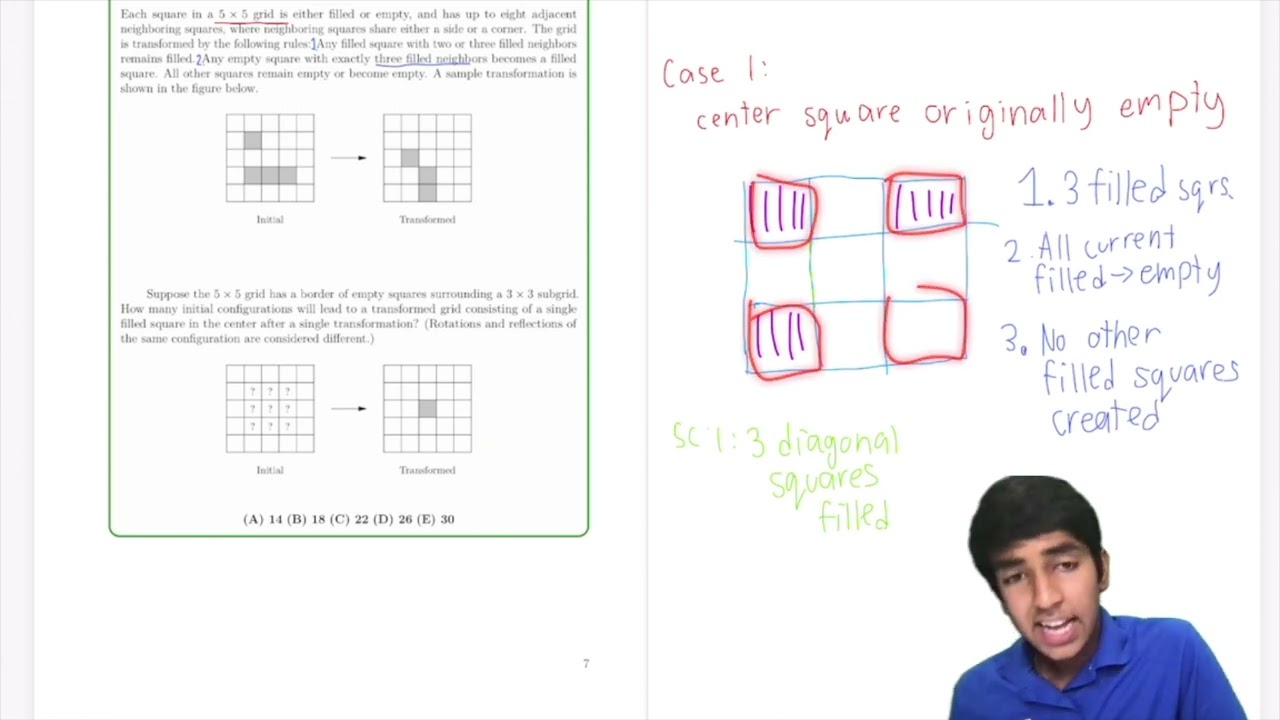 Each square in a 5 × 5 grid is either filled or empty, and has up to eight adjacent
neighboring squares, where neighboring squares share either a side or a corner. The grid
is transformed by the following rules:1Any filled square with two or three filled neighbors
remains filled.2Any empty square with exactly three filled neighbors becomes a filled
square. All other squares remain empty or become empty. A sample transformation is
shown in the figure below.
Initial
Transformed
Suppose the 5 × 5 grid has a border of empty squares surrounding a 3 × 3 subgrid.
How many initial configurations will lead to a transformed grid consisting of a single
filled square in the center after a single transformation? (Rotations and reflections of
the same configuration are considered different.)
? ? ?
? ? ?
? ? ?
Initial
Transformed
(A) 14 (B) 18 (C) 22 (D) 26 (E) 30
7
Case 1:
center square originally empty
1. 3 filled sqrs.
2. All current
filled→empty
3. No other
filled squares
created
SC 1: 3 diagonal
squares
filled